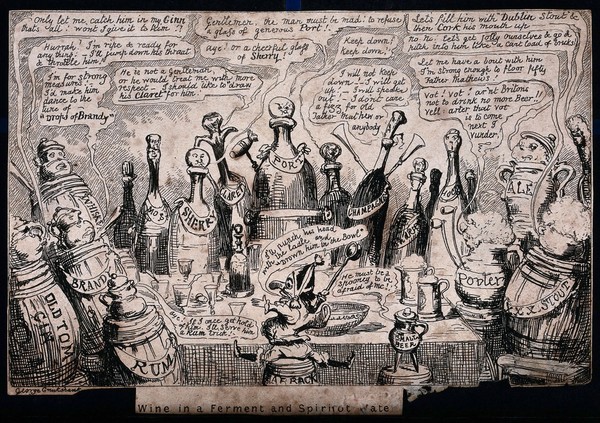 Only let me catch him in my Ginn
that's all! wont I give it to Him!!
Gentlemen, the man must be mad! to refuse
a glass of generous Port!
Let's fill him with Dublin Stout & be
then Cork his mouth up
Hurrah! I'm ripe & ready for
any thing - I'll jump down his throat
& throttle him!
Aye! or a cheerful glass
of Sherry!
Keep down!
Keep down,
no. no. let's get jolly ourselves & go &
pitch into him like a Cart load of bricks
I'm for strong
measures!
I'd make him
dance to the
tune of
"Drops of Brandy"
He is not a Gentleman
or he would treat me with more
respect - I should like to draw
his Claret for him!
I will not keep
down - I will get
up! - I will speak
out - I don't care
a fizz for old
Father Mathew or
anybody
Let me have a bout with him
I'm strong enough to floor fifty
Father Mathews!
Vot! Vot! ar'nt Britons
not to drink no more Beer!!
Vell arter that vot
is to come
next I
Vunder.
WHISKEY
MOS
SHERRY
CLARET
PORT
CHAMPAGNE
ALE
BRANDY
OLD TOM
GIN
RUM
My Punch, his head
with the Ladle and
Drown him in the Bowl
He must be a
Spooney to be
afraid of me!
If I once get hold
of him I'll serve him
a Rum trick!
Porter
XX STOUT
SMALL
BEER
ARRACK
George Cruikshank
Wine in a Ferment and Spirits in hot Water